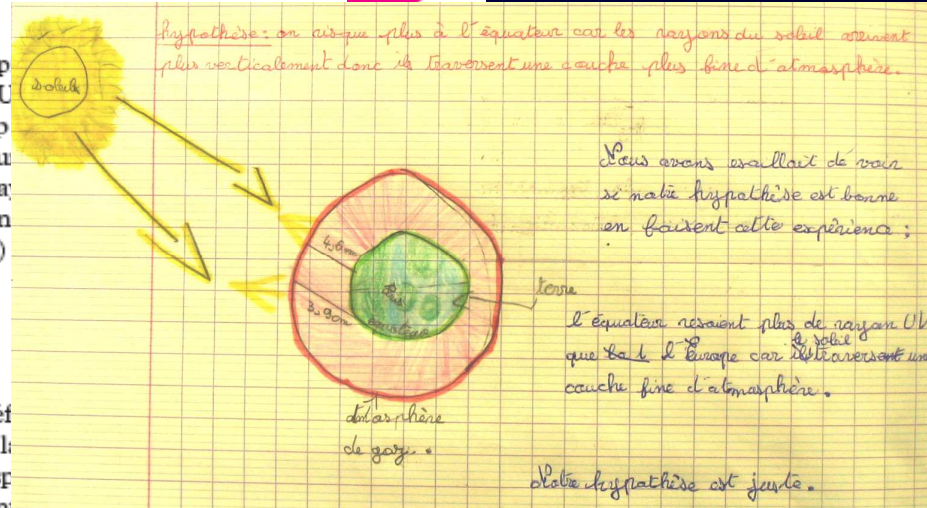 hypothèse: on risque plus à l'équateur car les rayons du soleil arrivent
plus verticalement donc ils traversent une couche plus fine d'atmosphère.
soleil
Nous avons essallait de voir
si notre hypothèse est bonne
en faisent cette expérience;
4,6cm
3,9cm
équateur
terre
l'équateur resoient plus de rayon UV
que l'Europe car le soleil traversent un
couche fine d'atmosphère.
atmosphère
de gaz.
Notre hypothèse est juste.